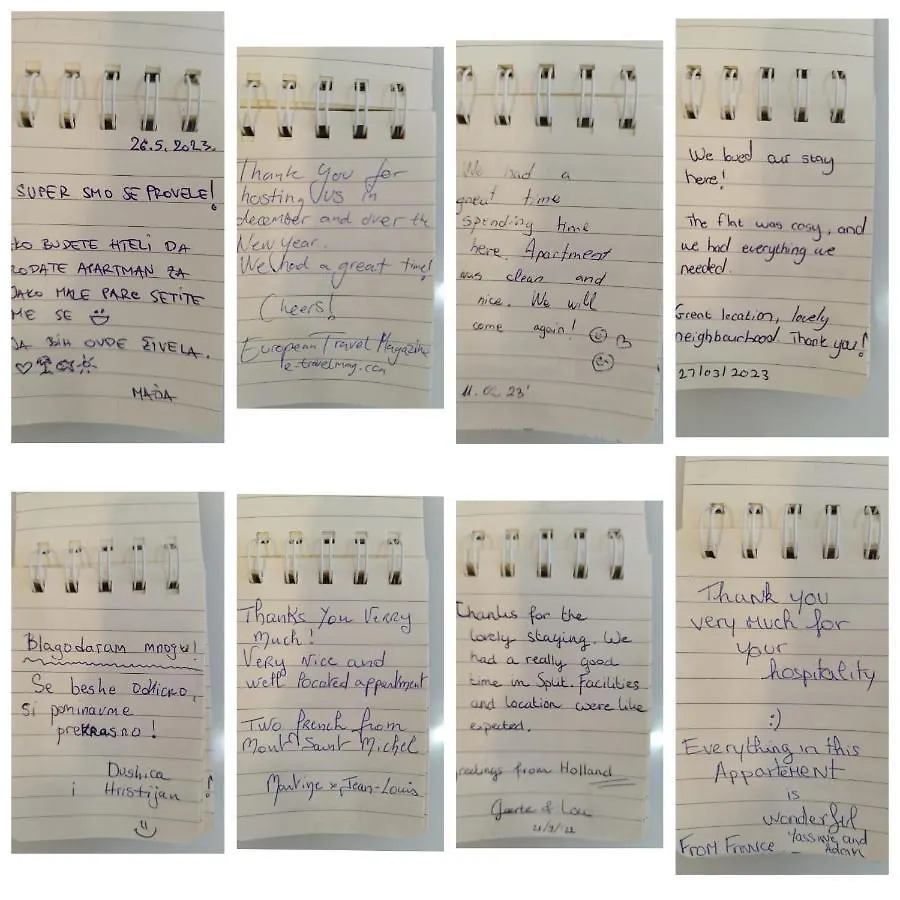 26.5.2023.
SUPER SMO SE PROVELE!
KO BUDETE HTELI DA
RODATE APARTMAN ZA
JAKO MALE PARE SETITE
ME SE
JA BIH OVDE ŽIVELA.
MAĐA
Thank you for
hosting us in
december and over the
New year.
We had a great time!
Cheers!
European Travel Magazine
e-travelmag.com
We had a
great time
spending time
here. Apartment
was clean and
nice. We will
come again!
11.02.23'
We loved our stay
here!
The flat was cosy, and
we had everything we
needed.
Great location, lovely
neighbourhood. Thank you!
27/03/2023
Blagodaram mnogu!
Se beshe odlicno,
si pominavme
prekrasno!
Dushica
i Hristijan
Thanks you Verry
much!
Very nice and
well located appartment
Two french from
Mont Saint Michel
Martine x Jean-Louis
Thanks for the
lovely staying. We
had a really good
time in Split. Facilities
and location were like
expected.
reetings from Holland
& Lou
Thank you
very much for
your
hospitality
:)
Everything in this
Appartement
is
wonderful
From France Yassine and
Adam